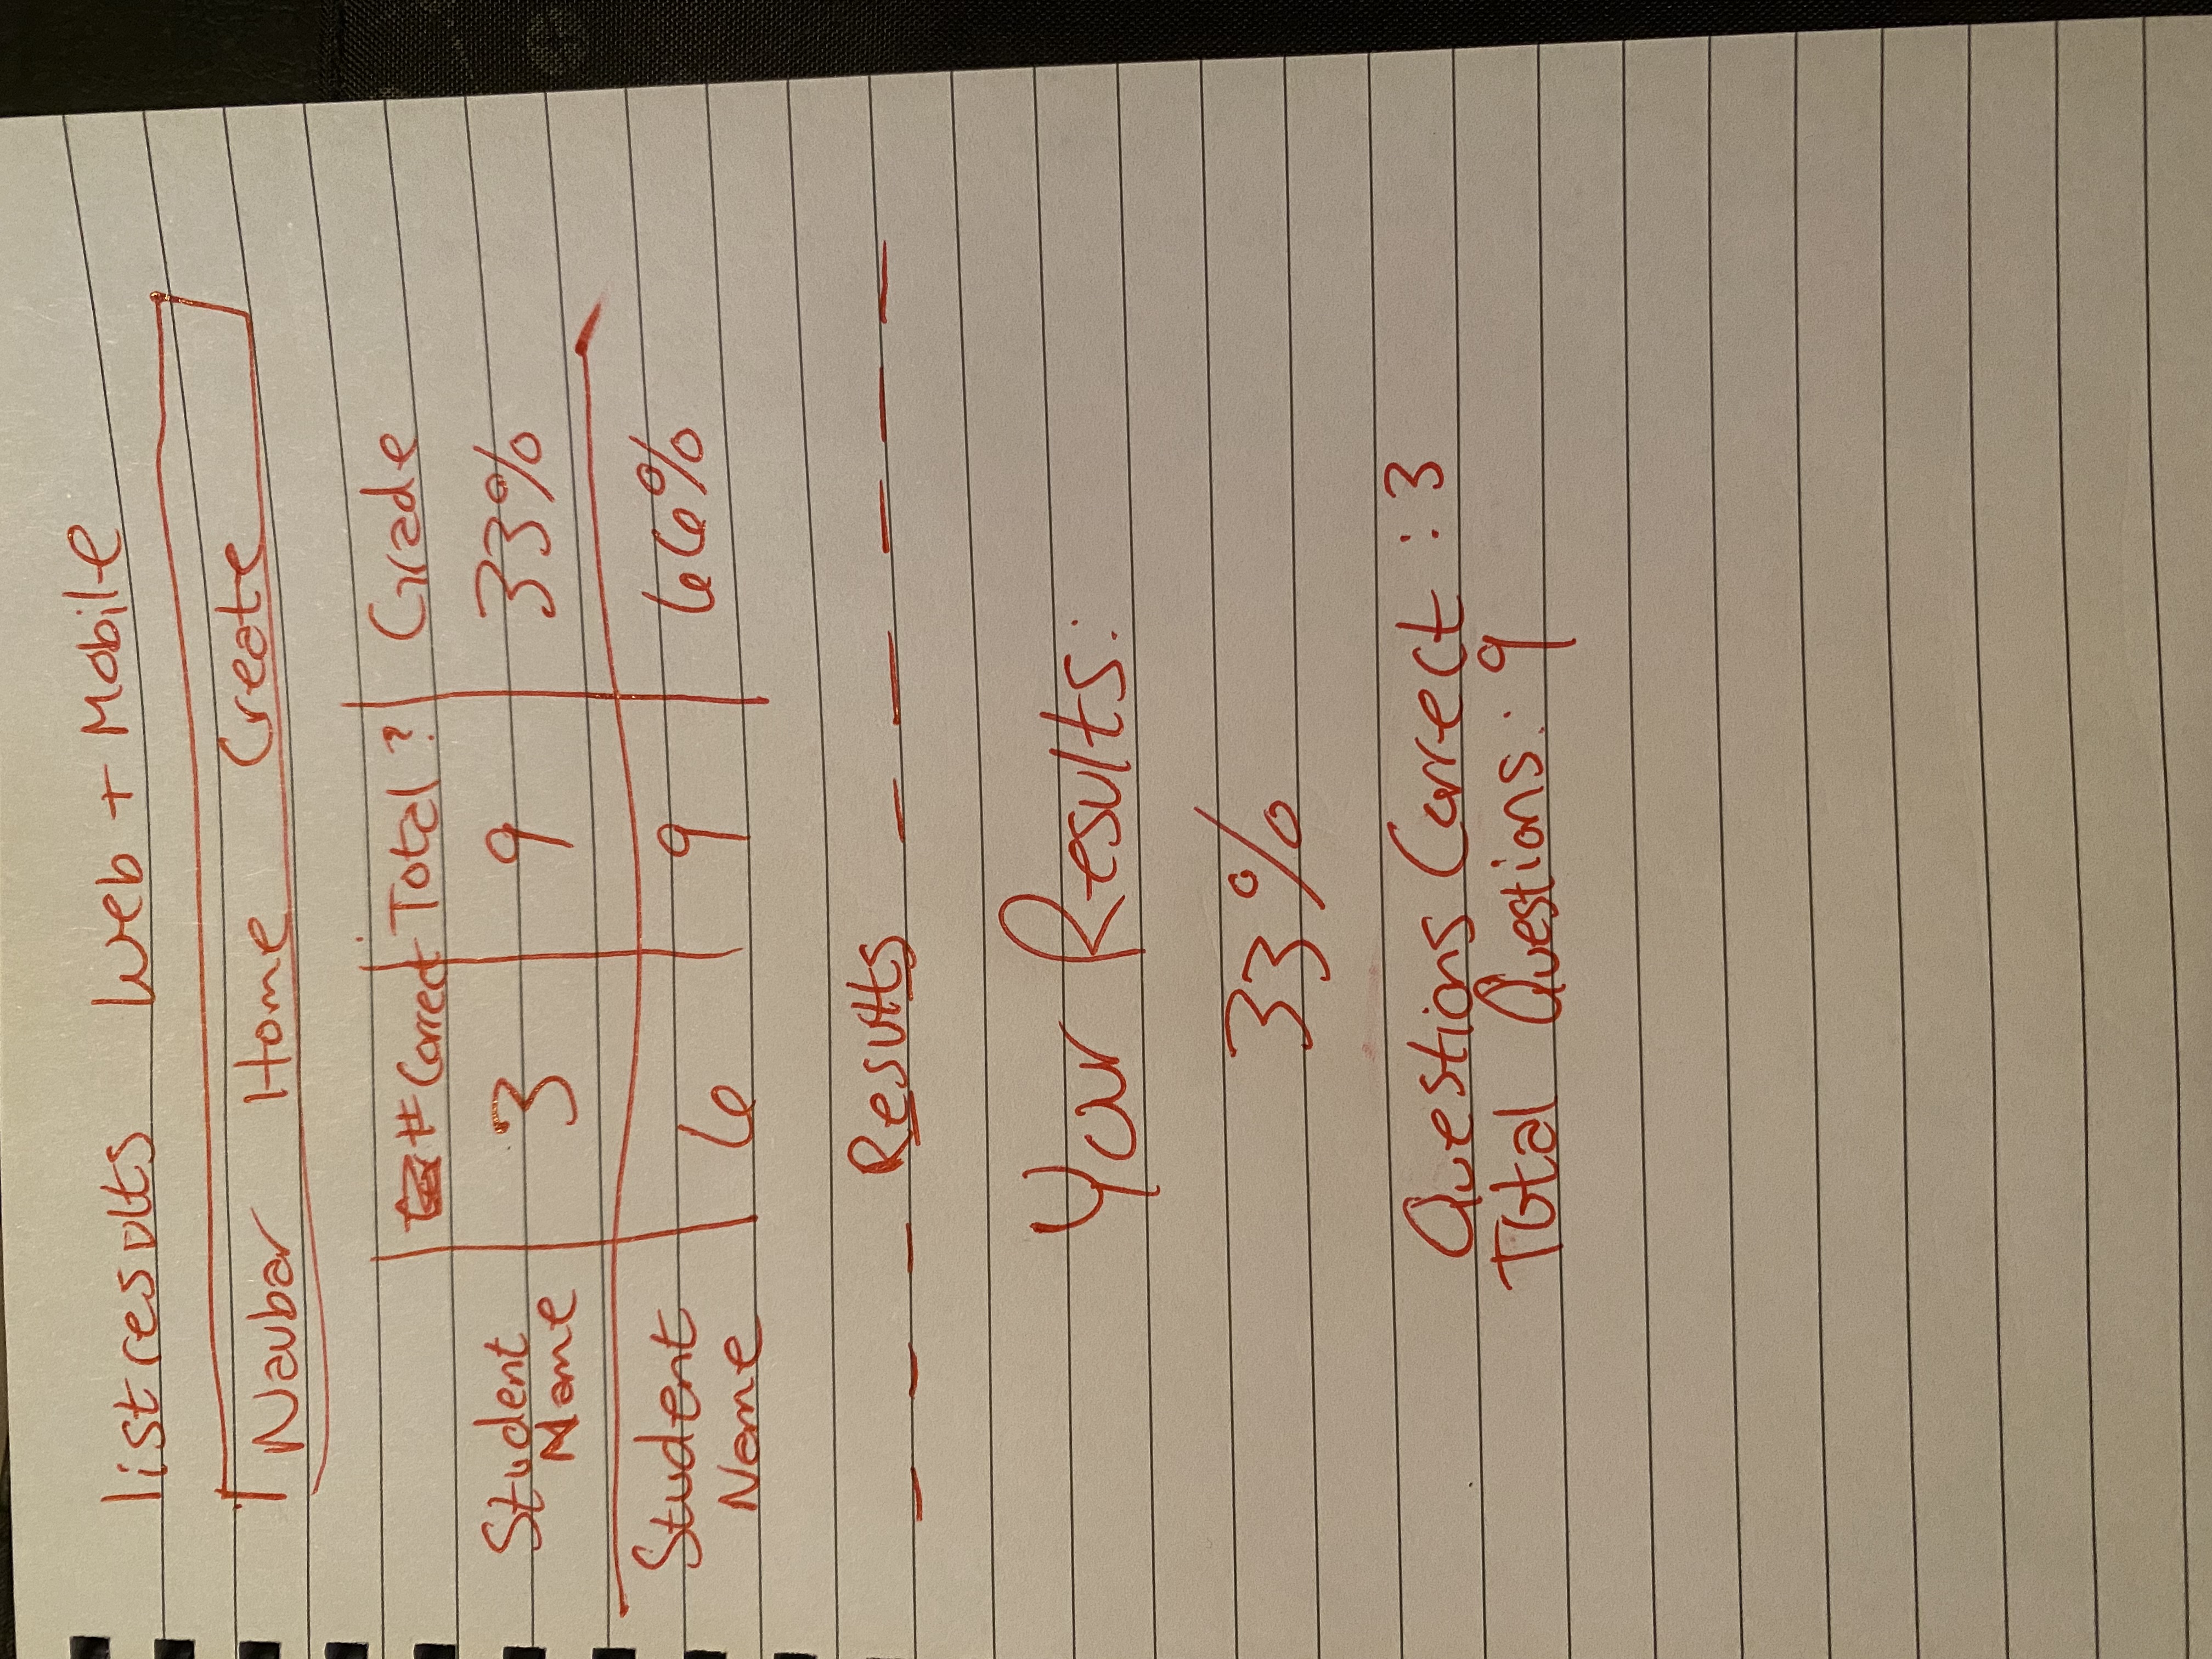 listresults Web + Mobile
Navbar Home Create
# Correct Total ? Grade
Student Name 3 9 33%
Student Name 6 9 66%
Results
Your Results:
33%
Questions Correct : 3
Total Questions: 9